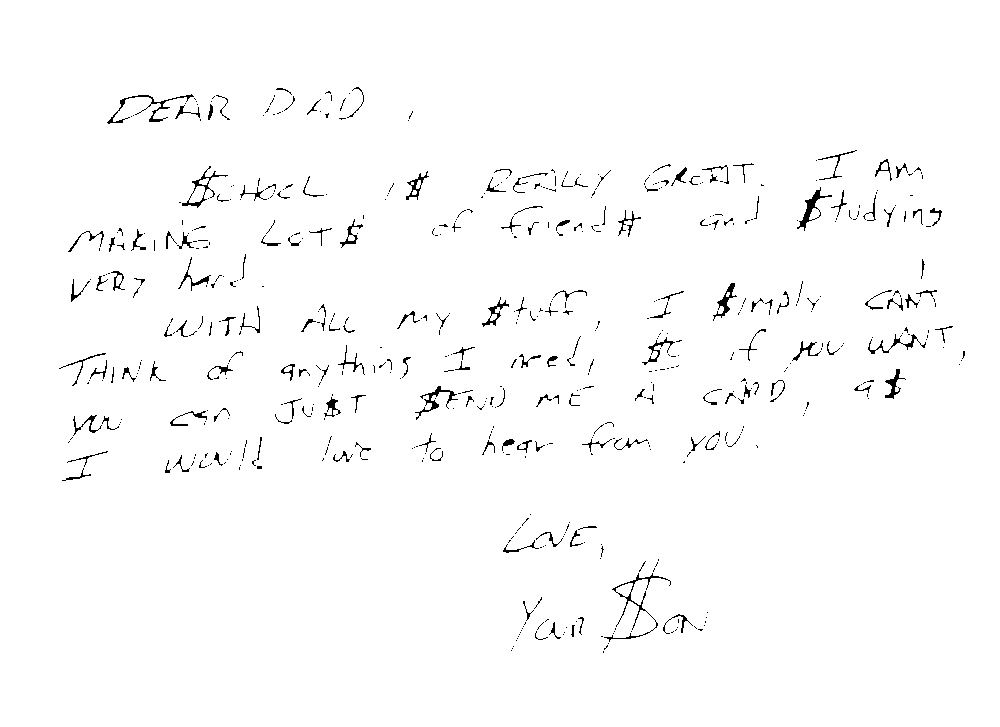 DEAR DAD,
$CHOOL I$ REALLY GREAT. I AM
MAKING LOT$ of friend$ and $tudying
VERY hard.
WITH ALL MY $tuff, I $IMPLY CAN'T
THINK of anything I need, $O if you WANT,
you can JU$T $END ME A CARD, a$
I would love to hear from you.
LOVE,
YOUR $ON